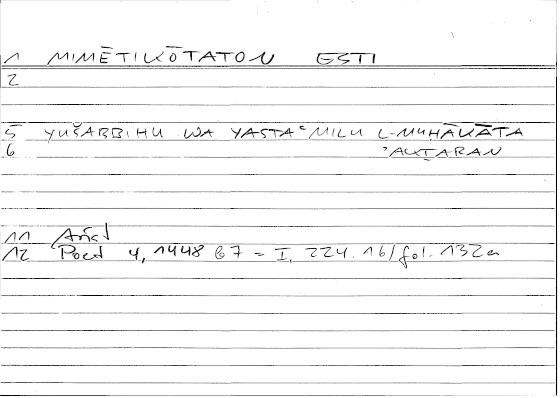 1 MIMĒTIKŌTATON ESTI
2
5 YUŠABBIHU WA YASTAʿMILU L-MUḤĀKĀTA
6 ʾAKṮARAN
11 Arist
12 Poet 4, 1448 b7 = I, 224.16/fol. 132a